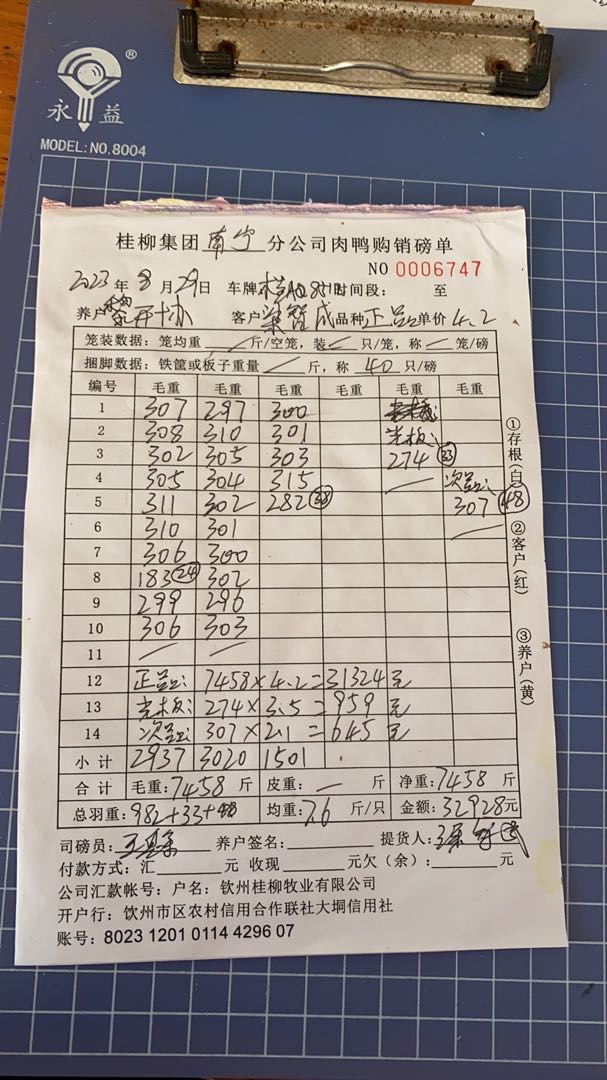 永益
®
MODEL:NO.8004
桂柳集团 南宁 分公司肉鸭购销磅单
NO 0006747
2023年8月29日 车牌 时间段: 至
养户 客户 品种 正品 单价 4.2
笼装数据: 笼均重 / 斤/空笼, 装 / 只/笼, 称 / 笼/磅
捆脚数据: 铁筐或板子重量 / 斤, 称 40 只/磅
编号 毛重 毛重 毛重 毛重 毛重 毛重
1 307 297 300
2 308 310 301 光板:
3 302 305 303 274 33
4 305 304 315 / 次品:
5 311 302 282 38 307 48
6 310 301 /
7 306 300
8 183 24 302
9 299 296
10 306 303
11 / /
12 正品: 7458×4.2=31324元
13 光板: 274×3.5=959元
14 次品: 307×2.1=645元
小计 2937 3020 1501
合计 毛重:7458斤 皮重: / 斤 净重:7458斤
总羽重:982+33+48 均重:7.6斤/只 金额:32928元
司磅员: 养户签名: 提货人:
付款方式: 汇 元 收现 元欠(余): 元
公司汇款帐号: 户名: 钦州桂柳牧业有限公司
开户行: 钦州市区农村信用合作联社大垌信用社
账号: 8023 1201 0114 4296 07
①存根(白)
②客户(红)
③养户(黄)